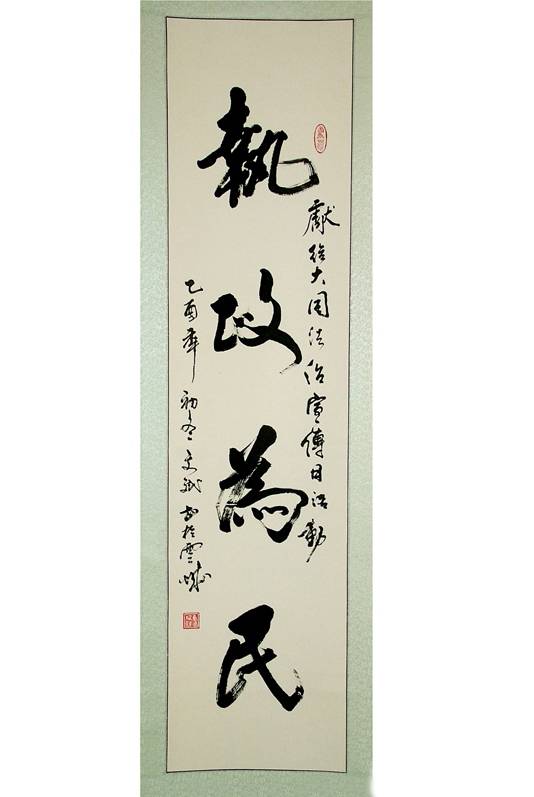 獻給大同法治宣傳日活動
執政為民
乙酉年初冬書於雲城